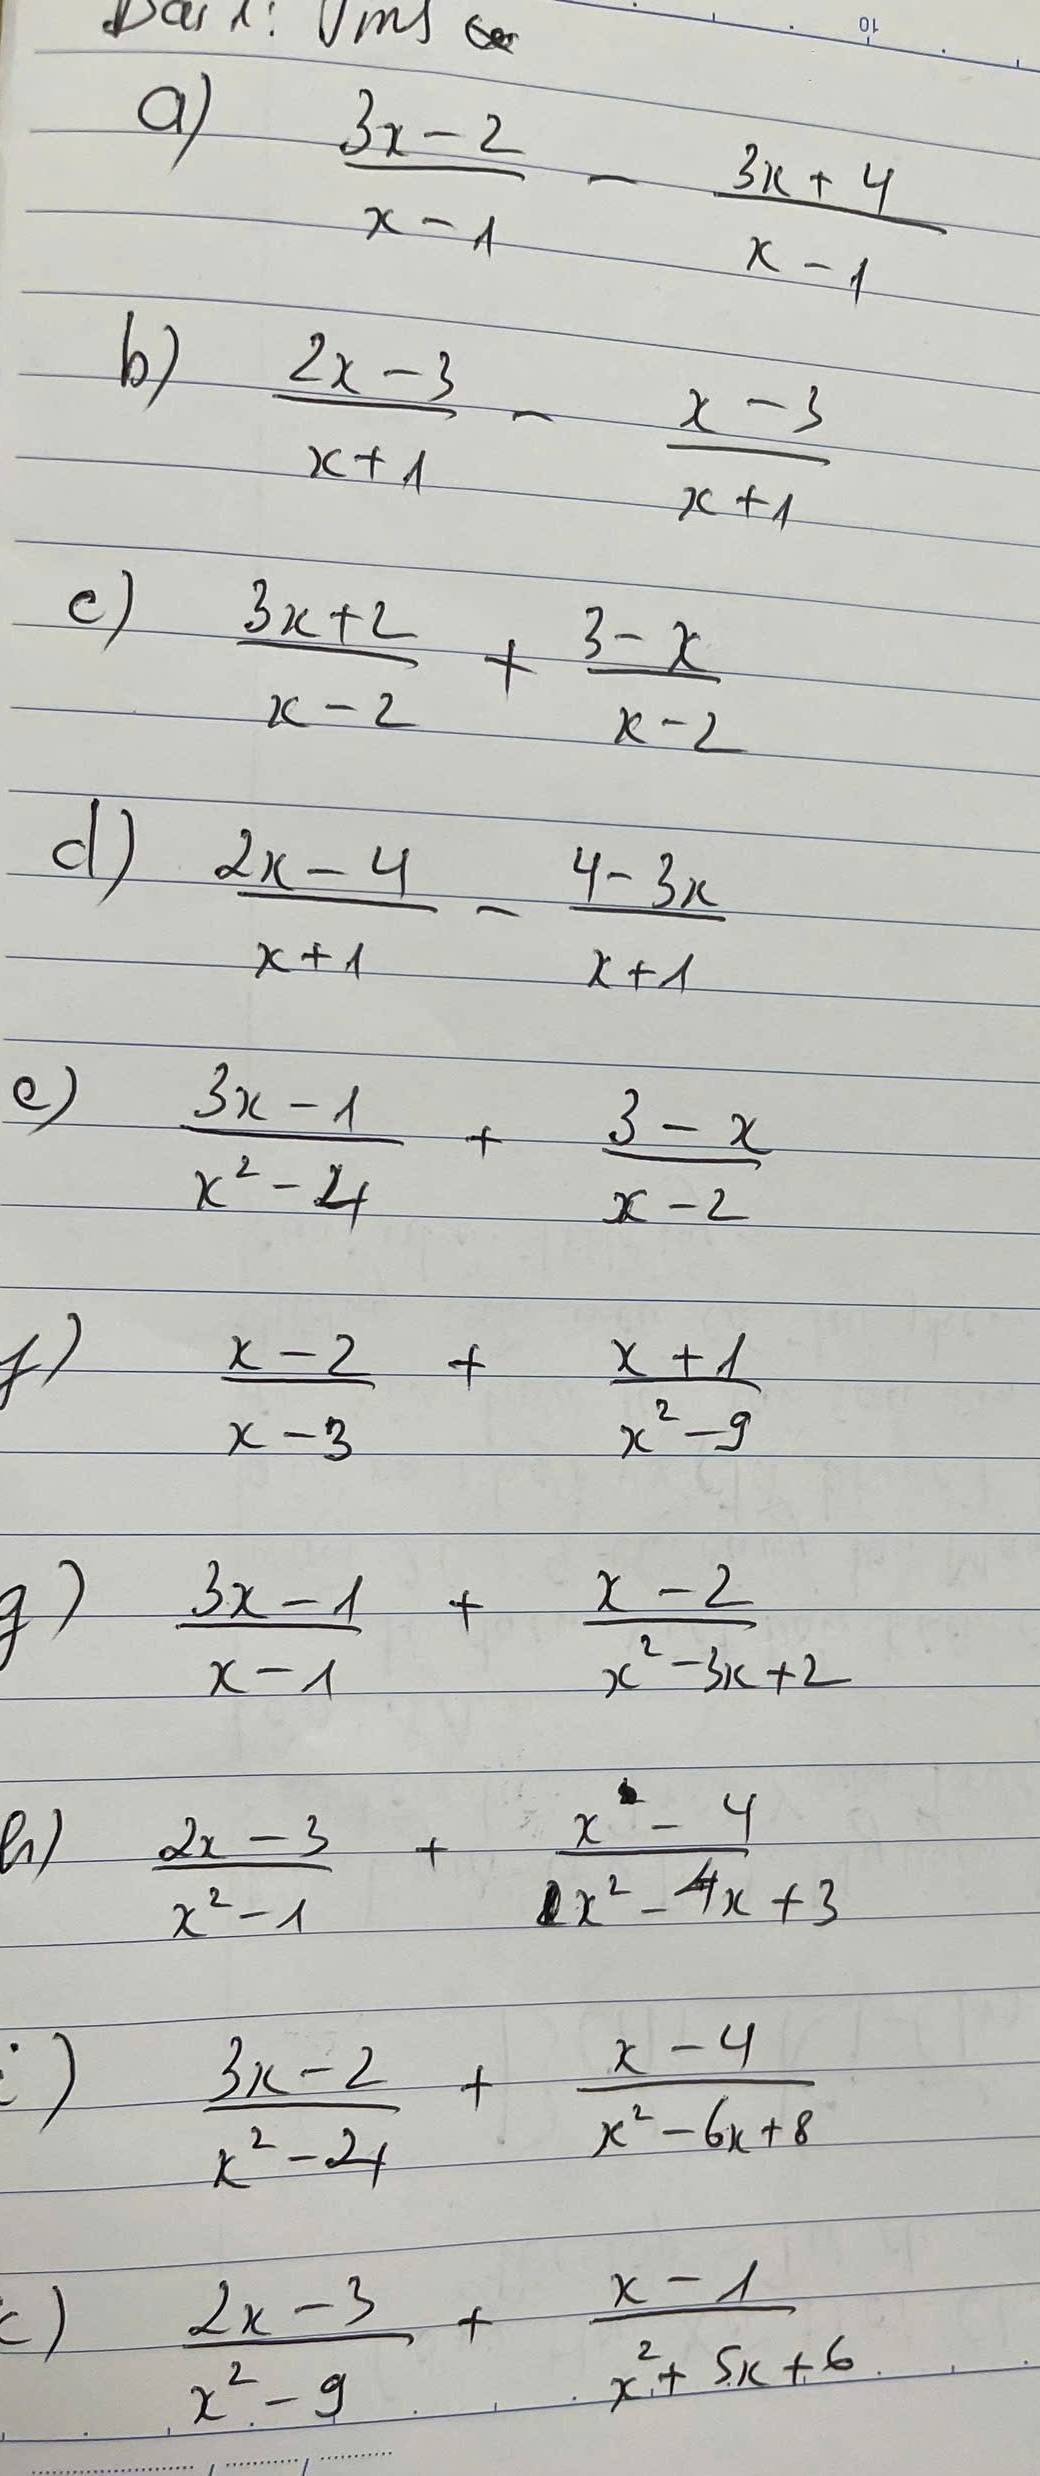 Bài 1:
a) \frac{3x-2}{x-1} - \frac{3x+4}{x-1}
b) \frac{2x-3}{x+1} - \frac{x-3}{x+1}
c) \frac{3x+2}{x-2} + \frac{3-x}{x-2}
d) \frac{2x-4}{x+1} - \frac{4-3x}{x+1}
e) \frac{3x-1}{x^2-4} + \frac{3-x}{x-2}
f) \frac{x-2}{x-3} + \frac{x+1}{x^2-9}
g) \frac{3x-1}{x-1} + \frac{x-2}{x^2-3x+2}
h) \frac{2x-3}{x^2-1} + \frac{x-4}{x^2-4x+3}
i) \frac{3x-2}{x^2-4} + \frac{x-4}{x^2-6x+8}
\frac{2x-3}{x^2-9} + \frac{x-1}{x^2+5x+6}